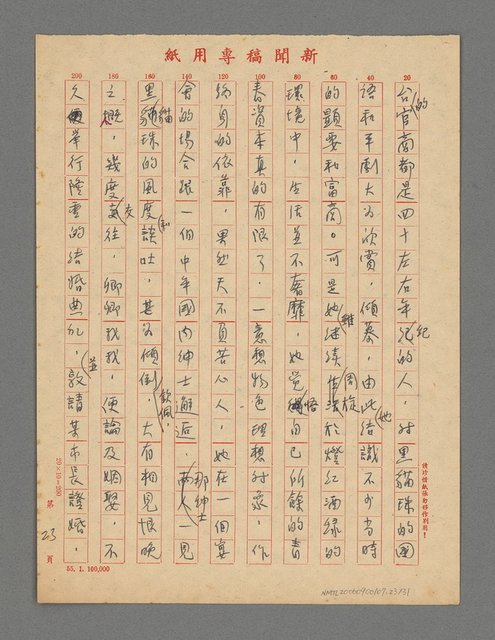 新聞稿專用紙
20 40 60 80 100 120 140 160 180 200
台的官商都是四十左右年紀的人，對黑貓珠的國
語和平劇大為欣賞，傾慕，由此她結識不少當時
的顯要和富商。可是她雖繼續周旋於燈紅酒綠的
環境中，生活並不奢靡，她覺悟自己所餘的青
春資本真的有限了，一意想物色理想對象，作
終身的依靠，果然天不負苦心人，她在一個宴
會的場合跟一個中年國內紳士邂逅，那紳士一見
黑貓珠的風度和談吐，甚為傾倒，欽佩，大有相見恨晚
之慨，幾度交往，卿卿我我，便論及婚娶，不
久舉行隆重的結婚典礼，並敦請某市長證婚，
請珍惜紙張勿移作別用！
20×10＝200
第 23 頁
55. 1. 100,000
NMTL20060900107.23/31